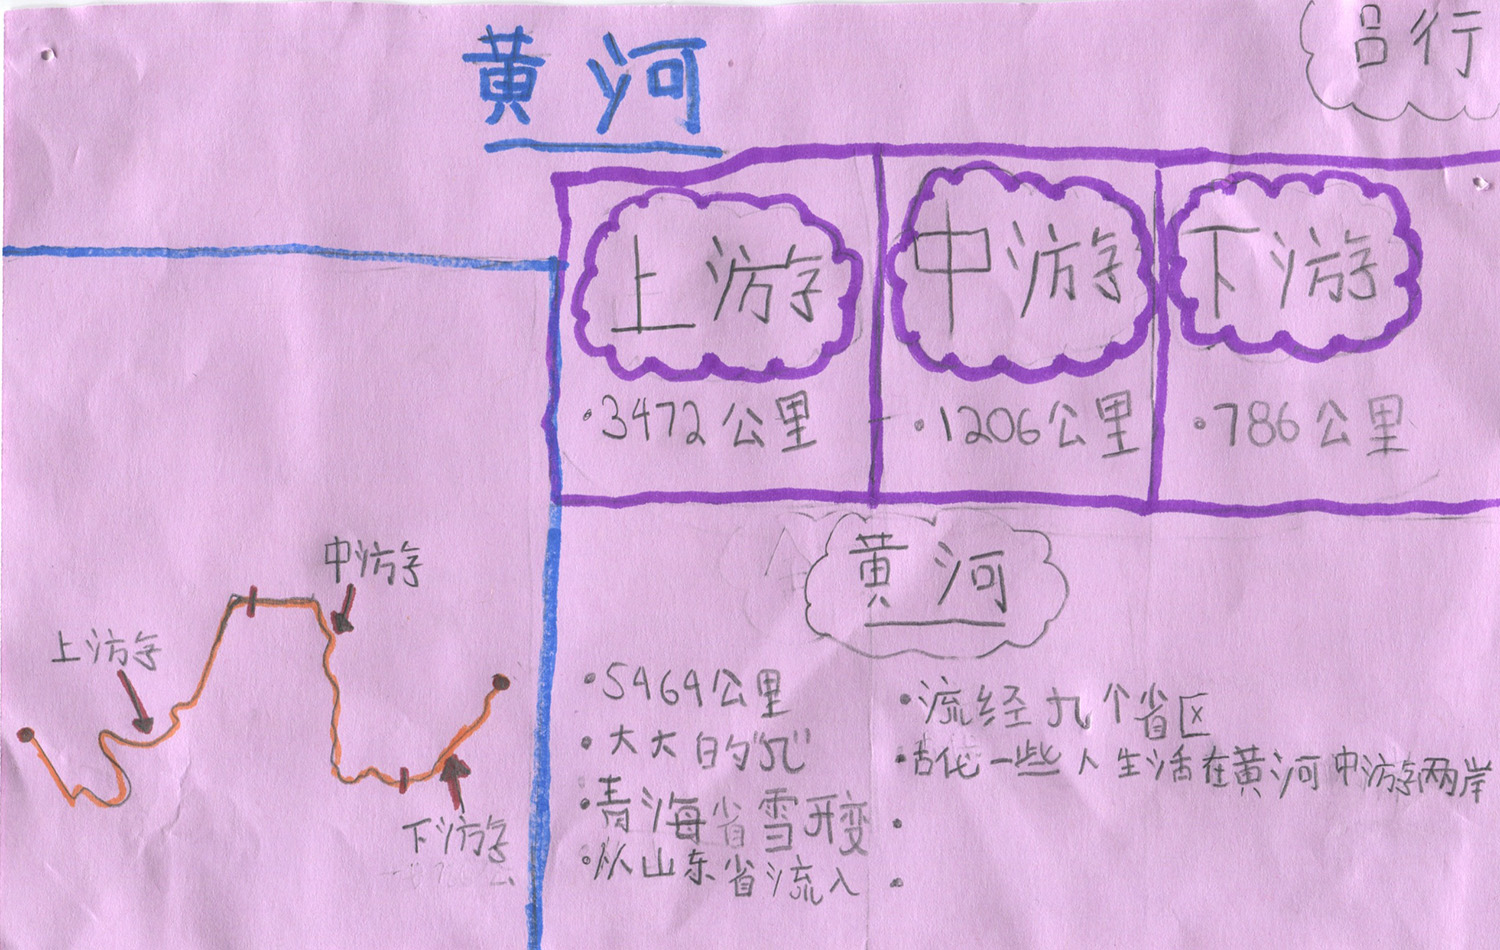 黄河
吕行
上游
中游
下游
·3472公里
·1206公里
·786公里
中游
上游
下游
黄河
·5464公里
·大大的"几"
·青海省雪开变
·从山东省流入
·流经九个省区
·古代一些人生活在黄河中游两岸